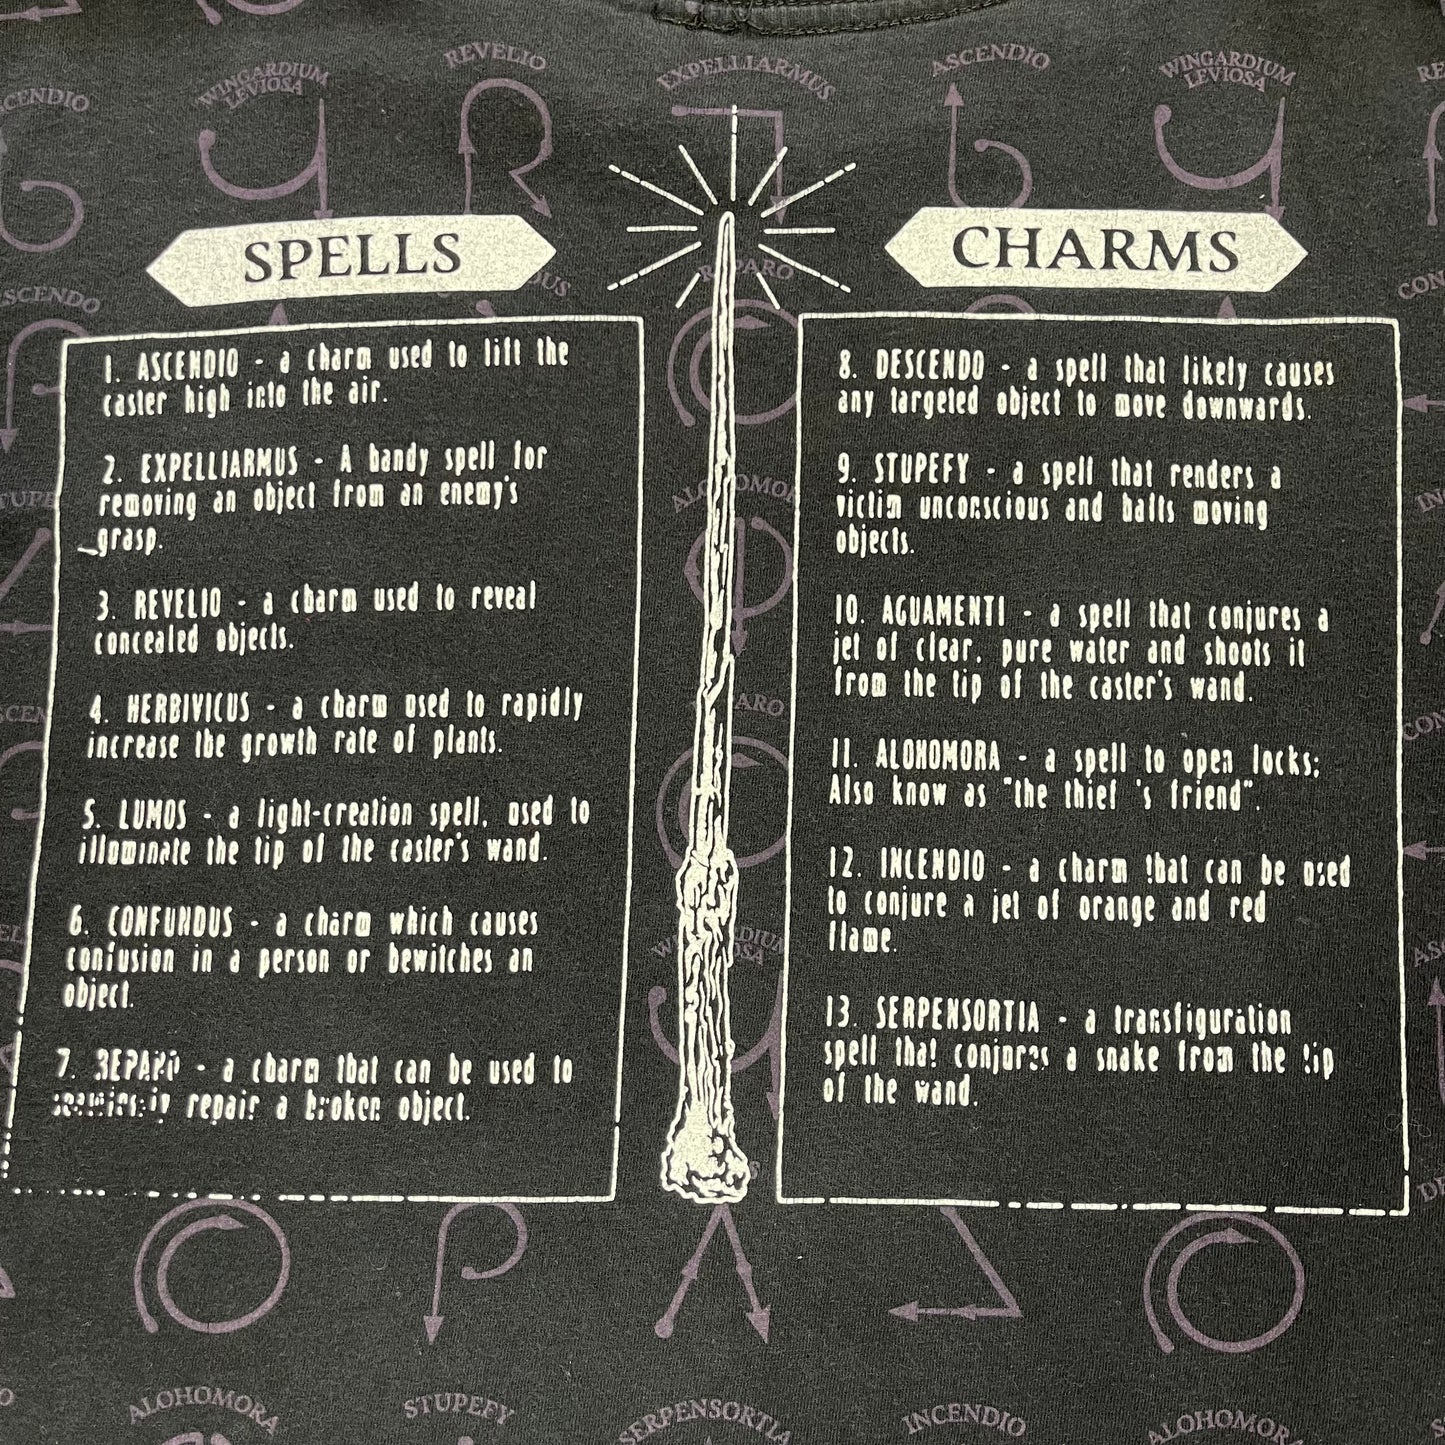 REVELIO
EXPELLIARMUS
ASCENDIO
WINGARDIUM
LEVIOSA
WINGARDIUM
LEVIOSA
SPELLS
CHARMS
1. ASCENDIO - a charm used to lift the
caster high into the air.
2. EXPELLIARMUS - A handy spell for
removing an object from an enemy's
grasp.
3. REVELIO - a charm used to reveal
concealed objects.
4. HERBIVICUS - a charm used to rapidly
increase the growth rate of plants.
5. LUMOS - a light-creation spell, used to
illuminate the tip of the caster's wand.
6. CONFUNDUS - a charm which causes
confusion in a person or bewitches an
object.
7. REPARO - a charm that can be used to
seamlessly repair a broken object.
8. DESCENDO - a spell that likely causes
any targeted object to move downwards.
9. STUPEFY - a spell that renders a
victim unconscious and halts moving
objects.
10. AGUAMENTI - a spell that conjures a
jet of clear, pure water and shoots it
from the tip of the caster's wand.
11. ALOHOMORA - a spell to open locks;
Also know as "the thief 's friend".
12. INCENDIO - a charm that can be used
to conjure a jet of orange and red
flame.
13. SERPENSORTIA - a transfiguration
spell that conjures a snake from the tip
of the wand.
ALOHOMORA
STUPEFY
SERPENSORTIA
INCENDIO
ALOHOMORA